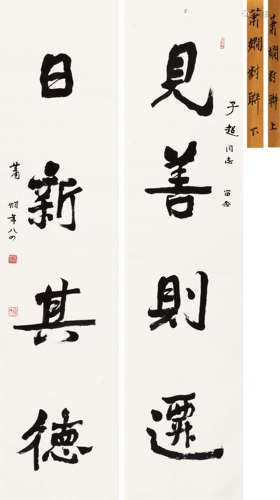 見善則遷
子超同志 留念
日新其德
蕭嫻年八四
蕭嫻對聯 上
蕭嫻對聯 下